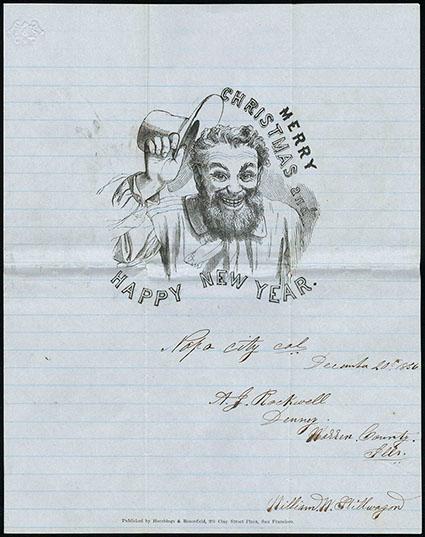 MERRY
CHRISTMAS and
HAPPY NEW YEAR.
Napa City Cal
December 20th 1856
A. J. Rockwell
Denny
Warren County
Ills.
William W. Stillwagon
Published by Hutchings & Rosenfield, 201 Clay Street Plaza, San Francisco.